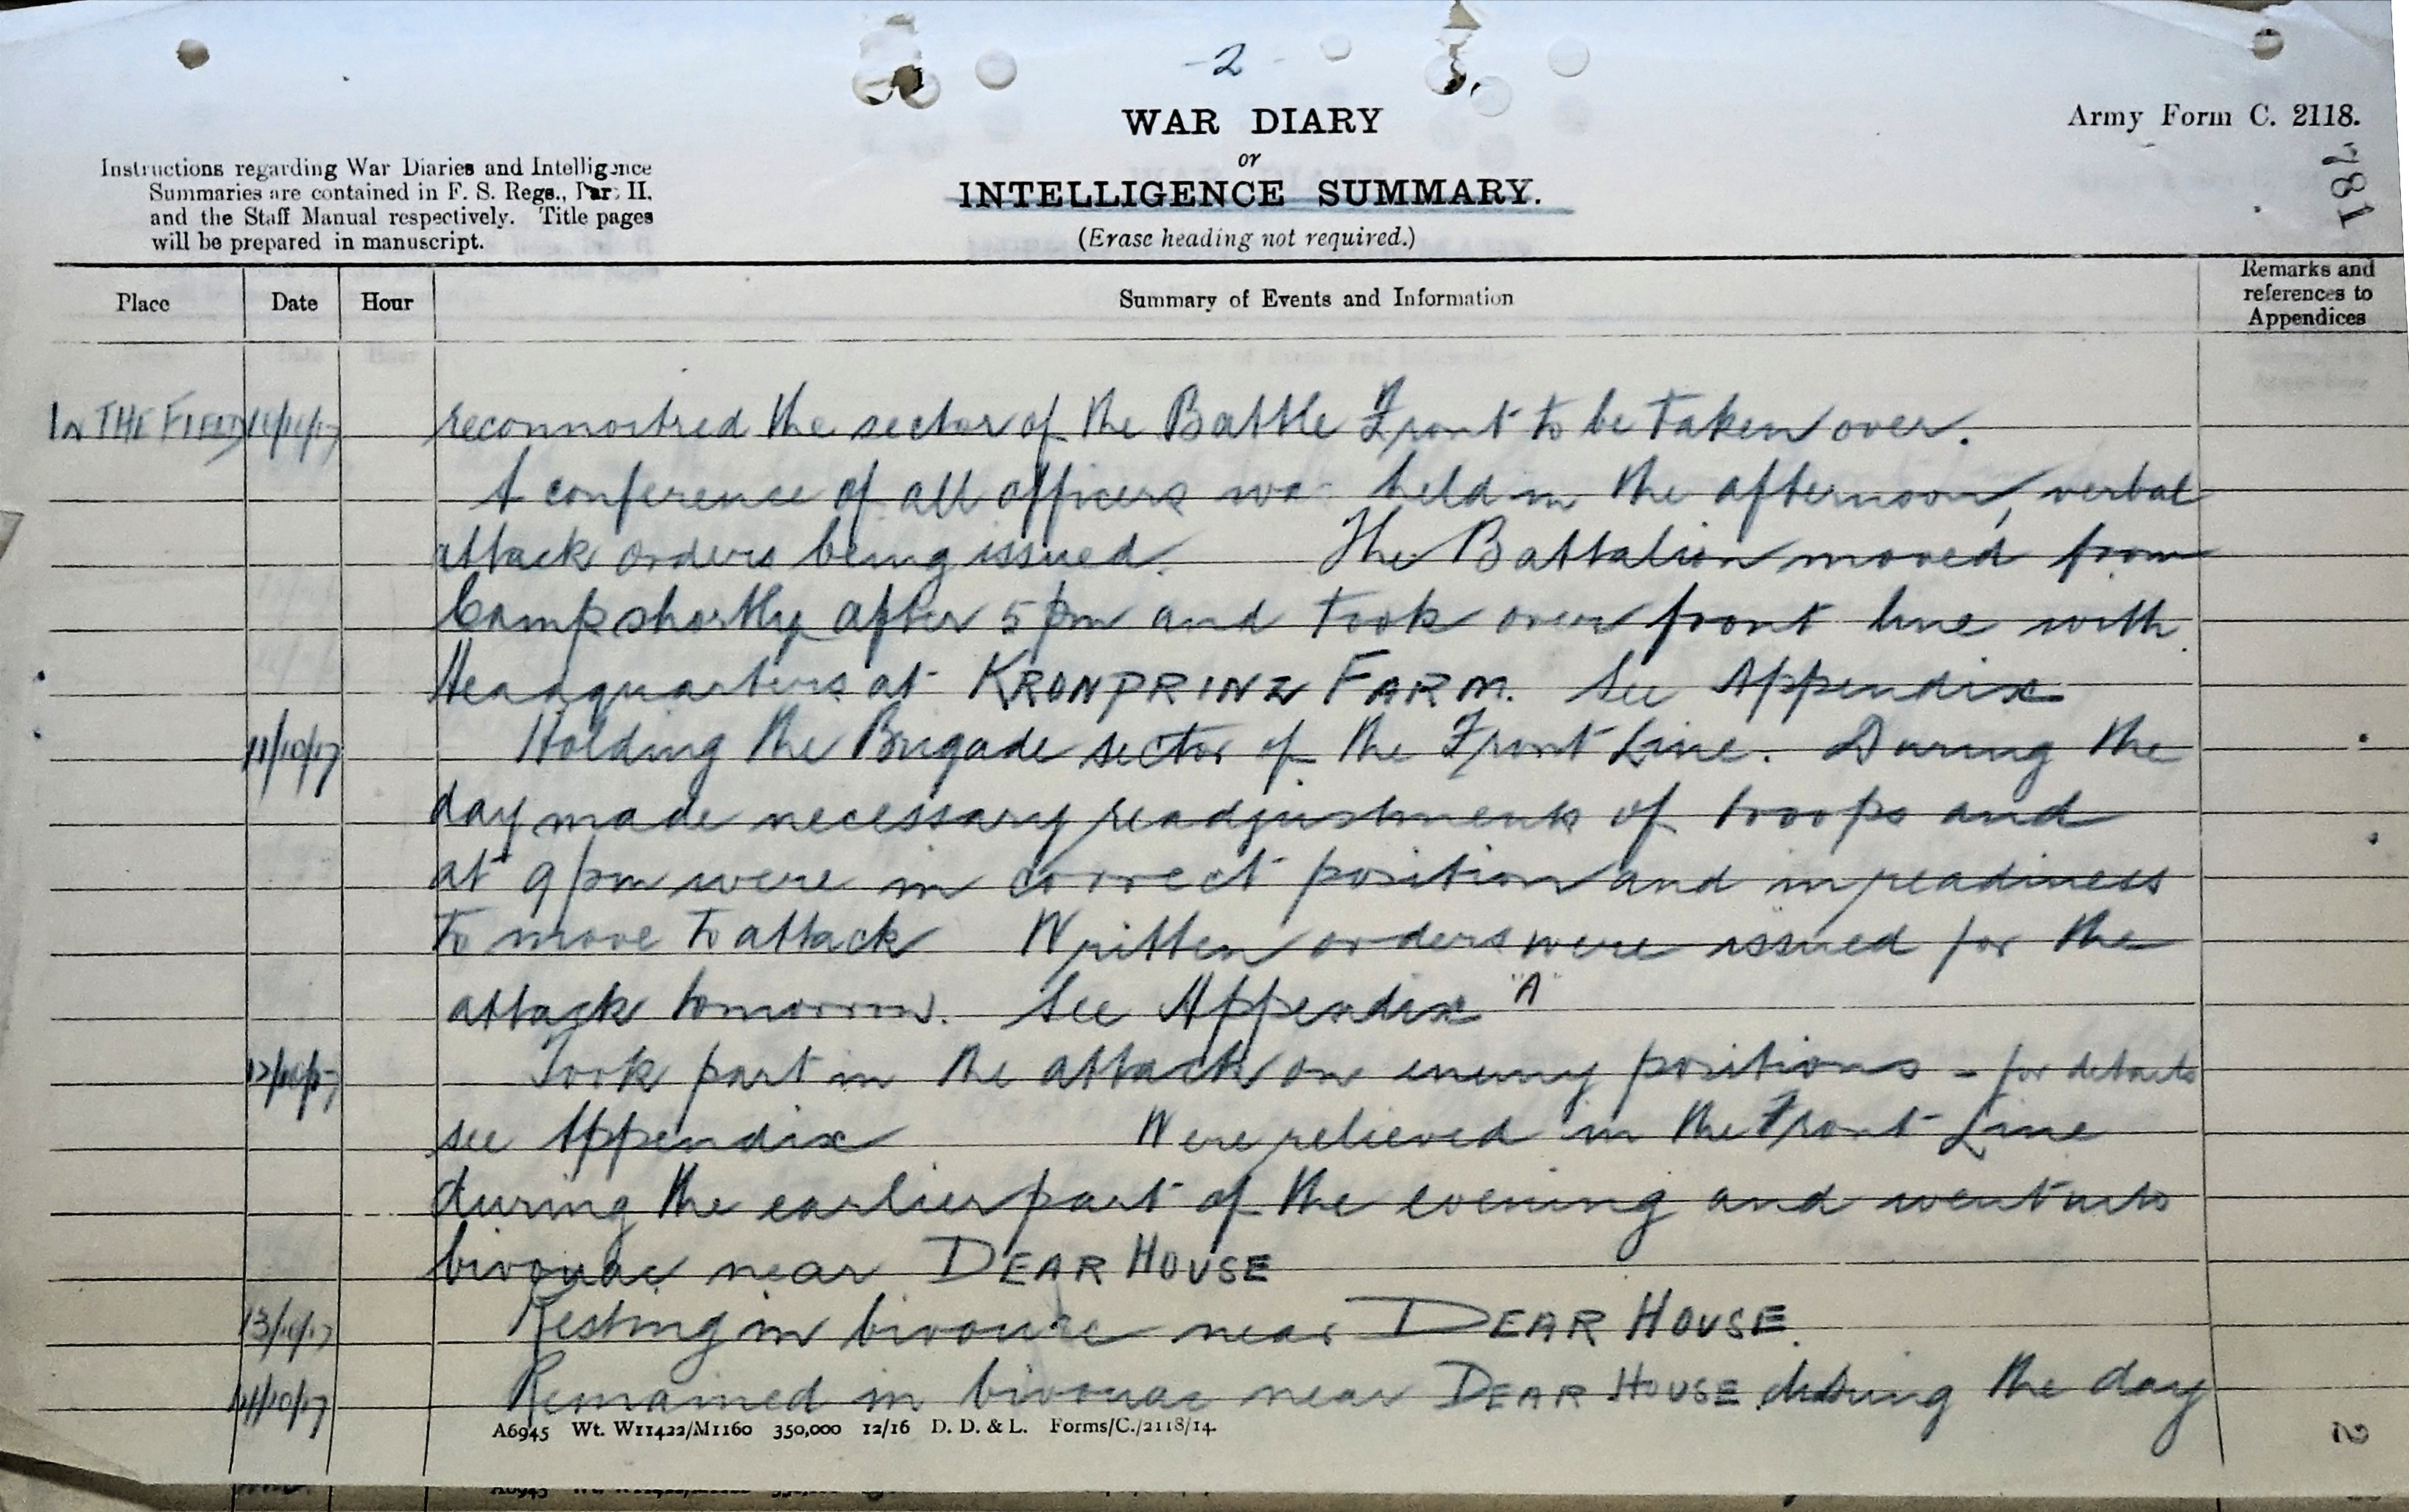 -2-
WAR DIARY
or
INTELLIGENCE SUMMARY.
(Erase heading not required.)
Army Form C. 2118.
Instructions regarding War Diaries and Intelligence
Summaries are contained in F. S. Regs., Part II.
and the Staff Manual respectively. Title pages
will be prepared in manuscript.
Place Date Hour Summary of Events and Information Remarks and references to Appendices
IN THE FIELD reconnoitred the sector of the Battle Front to be taken over.
A conference of all officers was held in the afternoon, verbal
attack orders being issued. The Battalion moved from
Camp shortly after 5 pm and took over front line with
Headquarters at KRONPRINZ FARM. See Appendix
11/10/17 Holding the Brigade sector of the Front Line. During the
day made necessary readjustments of troops and
at 9 pm were in correct position and in readiness
to move to attack Written orders were issued for the
attack tomorrow. See Appendix "A"
12/10/17 Took part in the attack on enemy positions - for details
see Appendix Were relieved in the Front Line
during the earlier part of the evening and went into
bivouac near DEAR HOUSE
13/10/17 Resting in bivouac near DEAR HOUSE.
14/10/17 Remained in bivouac near DEAR HOUSE during the day
A6945 Wt. W11422/M1160 350,000 12/16 D. D. & L. Forms/C./2118/14.